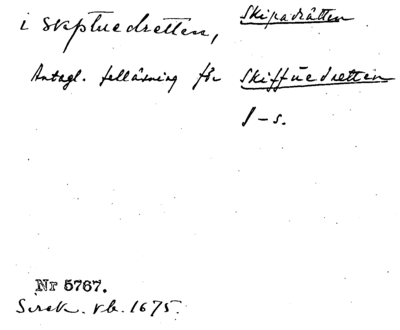 i skptuedretten, Skipadråtten
Antagl. felläsning för Skiffuedretten
I-s.
Nr 5767.
Sirek. vb. 1675.